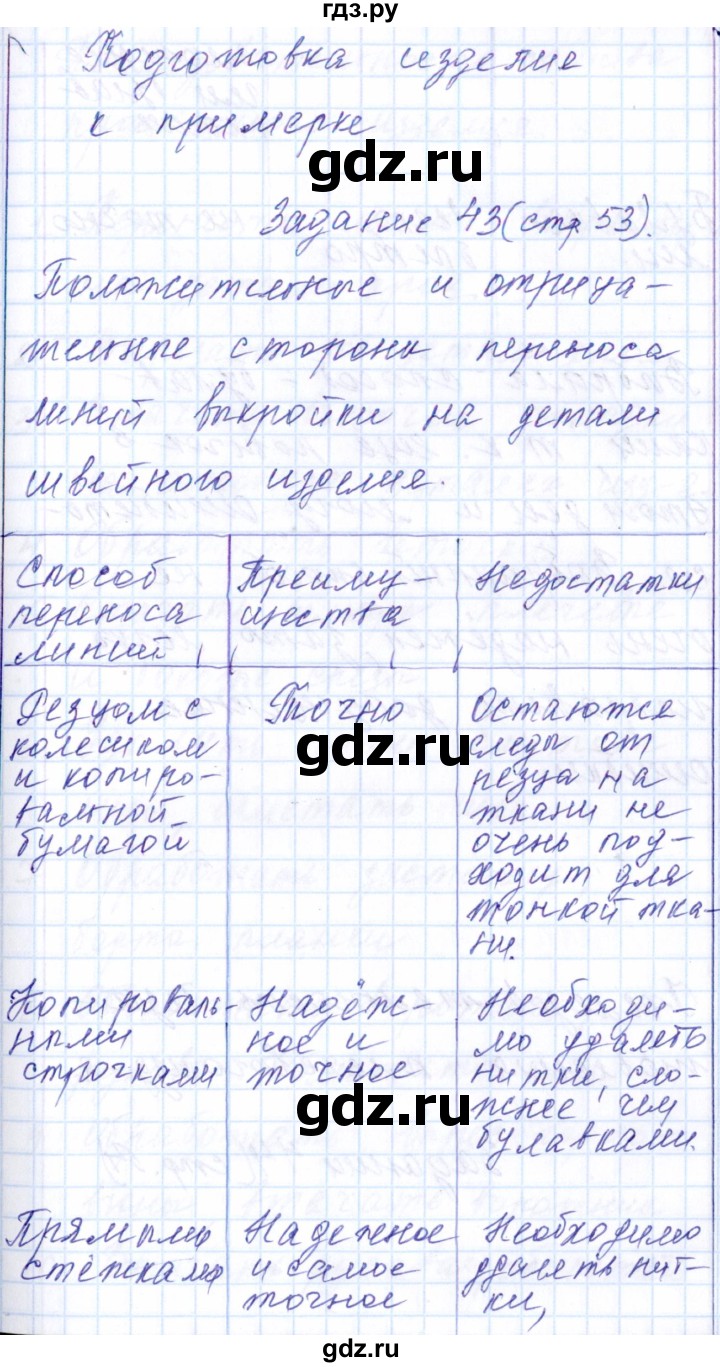 гдз.ру
Подготовка изделие
к примерке
gdz.ru
Задание 43 (стр 53).
Положительные и отрица-
тельные стороны переноса
линий выкройки на детали
швейного изделия.
gdz.ru
Способ
переноса
линий
Преиму-
щества
Недостатки
Резцом с
колесиком
и копиро-
вальной
бумагой
Точно
Остаются
следы от
резца на
ткани не
очень под-
ходит для
тонкой тка-
ни.
gdz.ru
Копироваль-
ными
строчками
Надёж-
ное и
точное
Необходи-
мо удалять
нитки, сло-
жнее, чем
булавками.
gdz.ru
Прямыми
стёжками
Надежное
и самое
точное
Необходимо
удалять нит-
ки,
gdz.ru